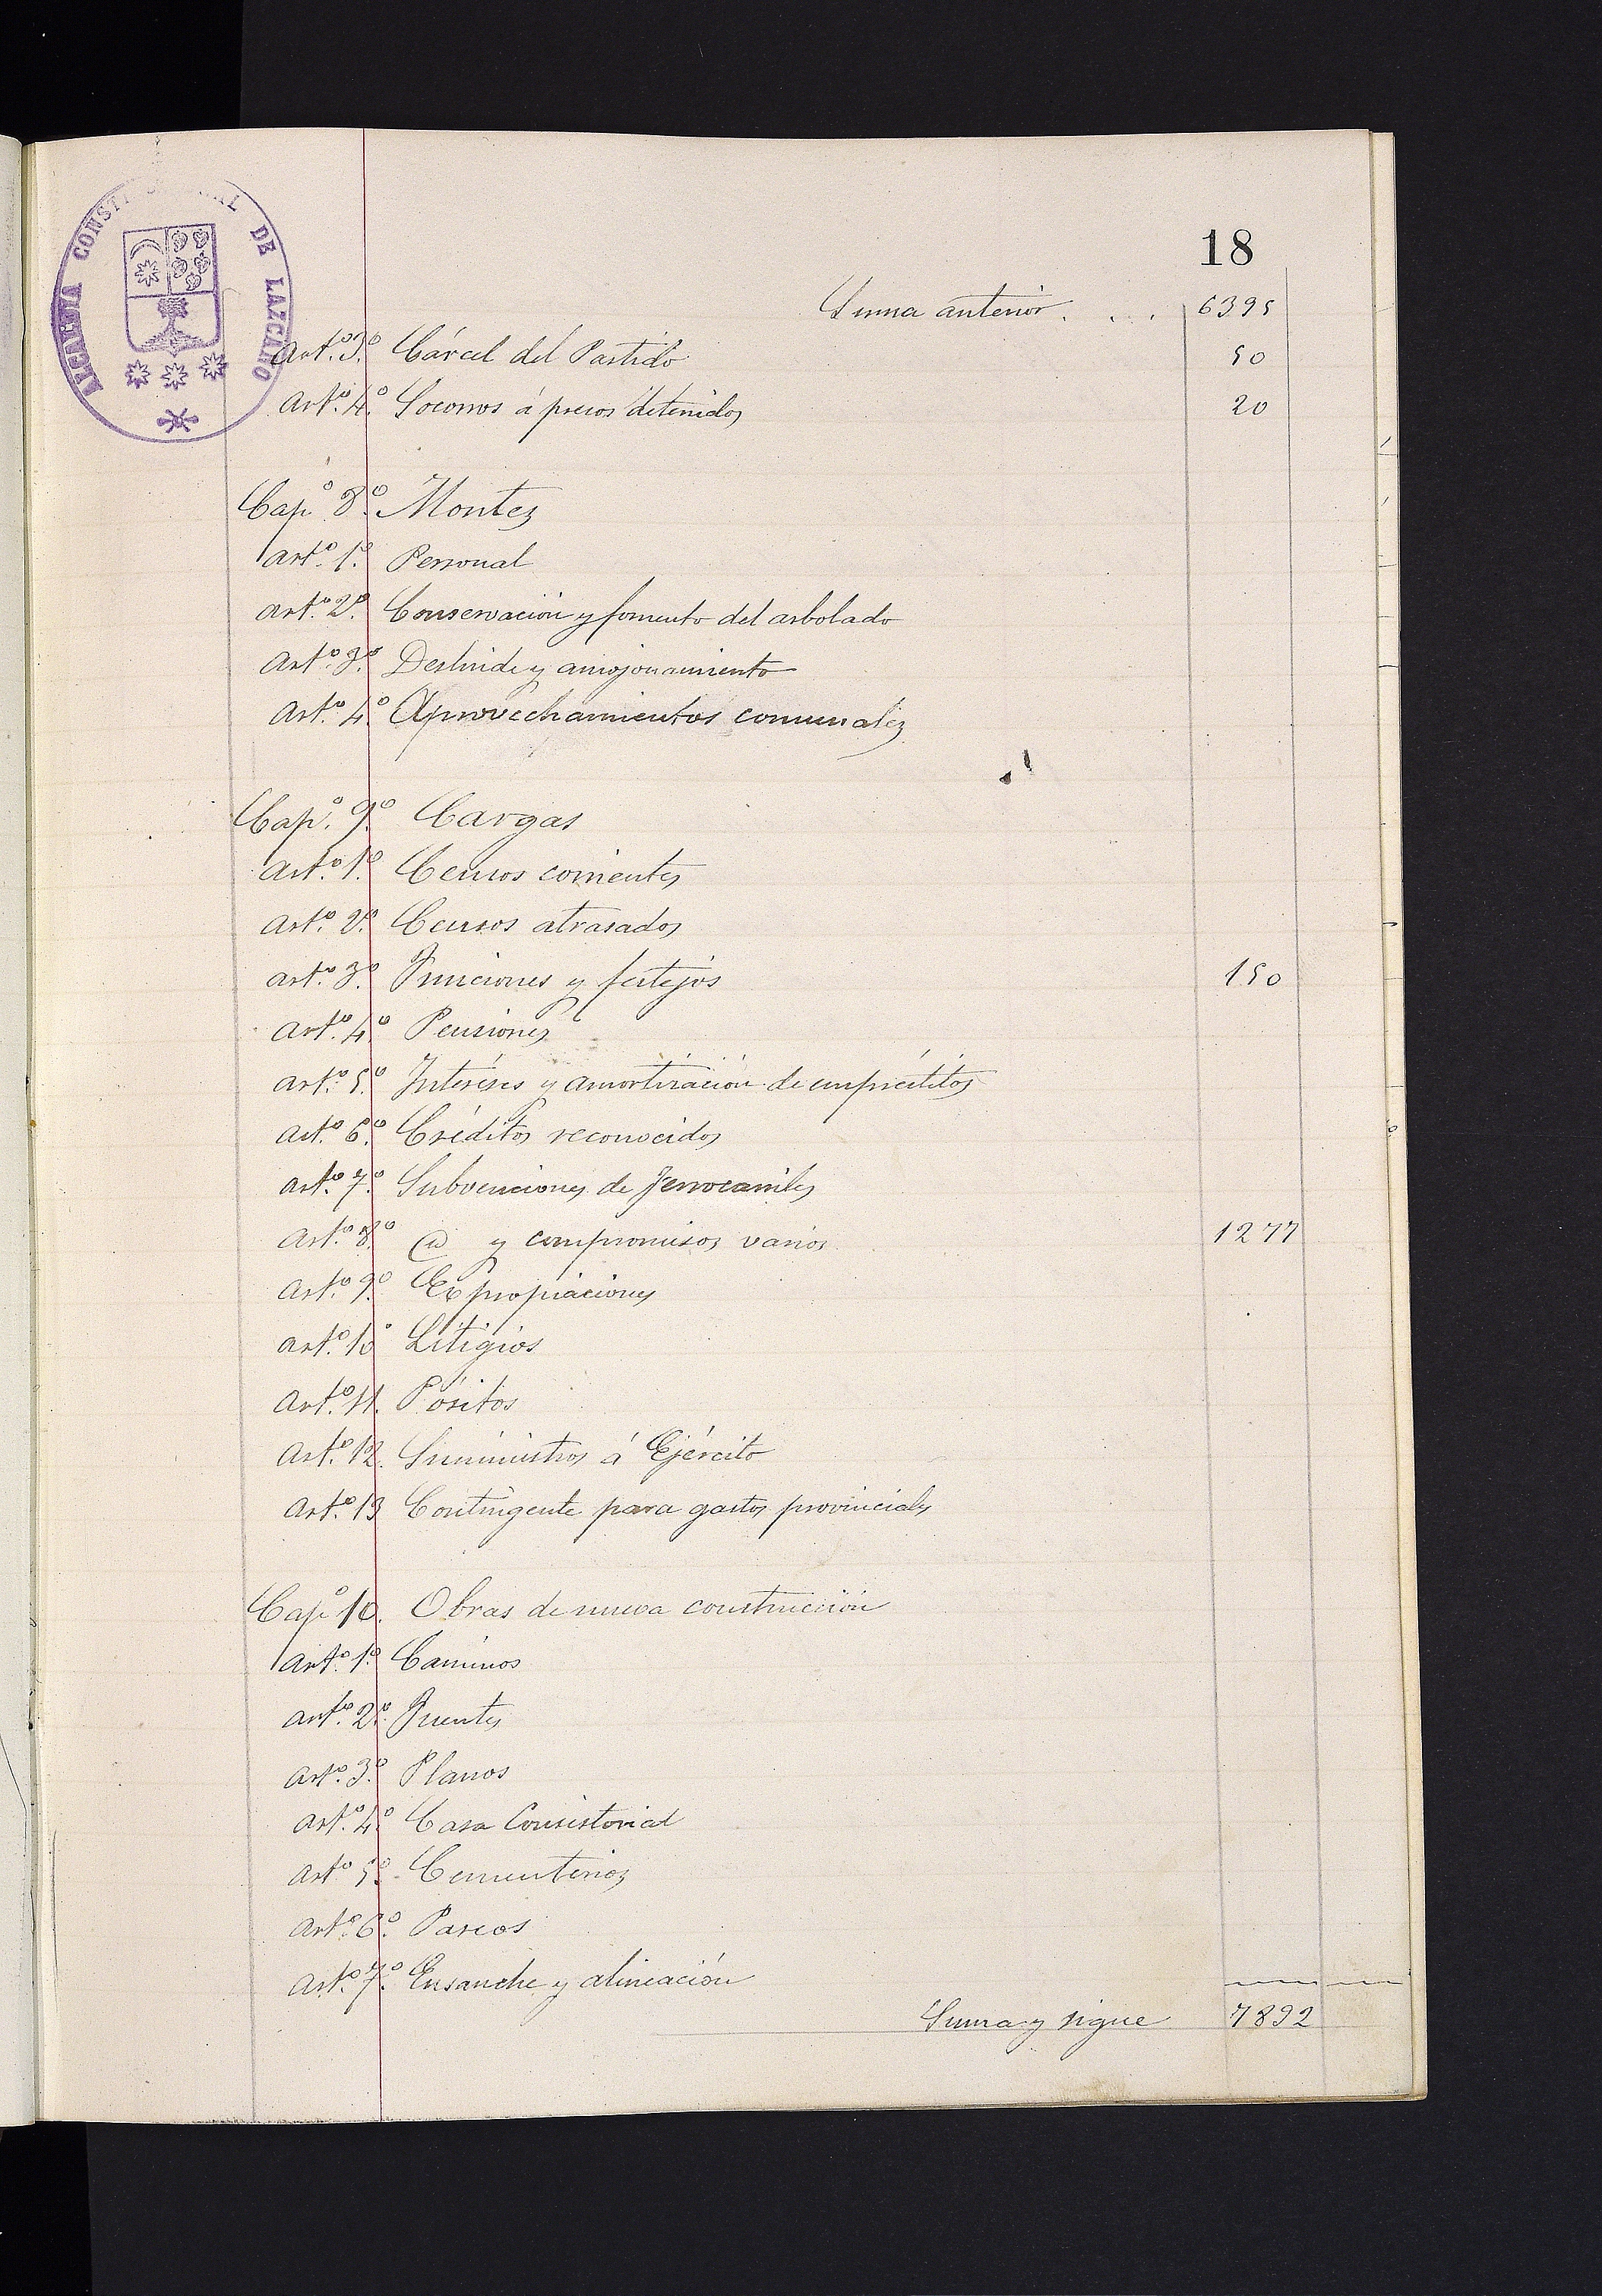 ALCALDIA CONSTITUCIONAL DE LAZCANO
18
Suma anterior. . . . 6395
Art.º 3.º Cárcel del Partido 50
Art.º 4.º Socorros á presos detenidos 20
Cap.º 8.º Montes
Art.º 1.º Personal
Art.º 2.º Conservación y fomento del arbolado
Art.º 3.º Deslinde y amojonamiento
Art.º 4.º Aprovechamientos comunales
Cap.º 9.º Cargas
Art.º 1.º Censos corrientes
Art.º 2.º Censos atrasados
Art.º 3.º Funciones y festejos 150
Art.º 4.º Pensiones
Art.º 5.º Interéses y amortización de empréstitos
Art.º 6.º Créditos reconocidos
Art.º 7.º Subvenciones de ferrocarriles
Art.º 8.º @ y compromisos varios 1277
Art.º 9.º Expropiaciones
Art.º 10 Litigios
Art.º 11. Pósitos
Art.º 12. Suministros á Ejército
Art.º 13 Contingente para gastos provinciales
Cap.º 10. Obras de nueva construcción
Art.º 1.º Caminos
Art.º 2.º Puentes
Art.º 3.º Planos
Art.º 4.º Casa Consistorial
Art.º 5.º Cementerios
Art.º 6.º Paseos
Art.º 7.º Ensanche y alineación
Suma y sigue 7892